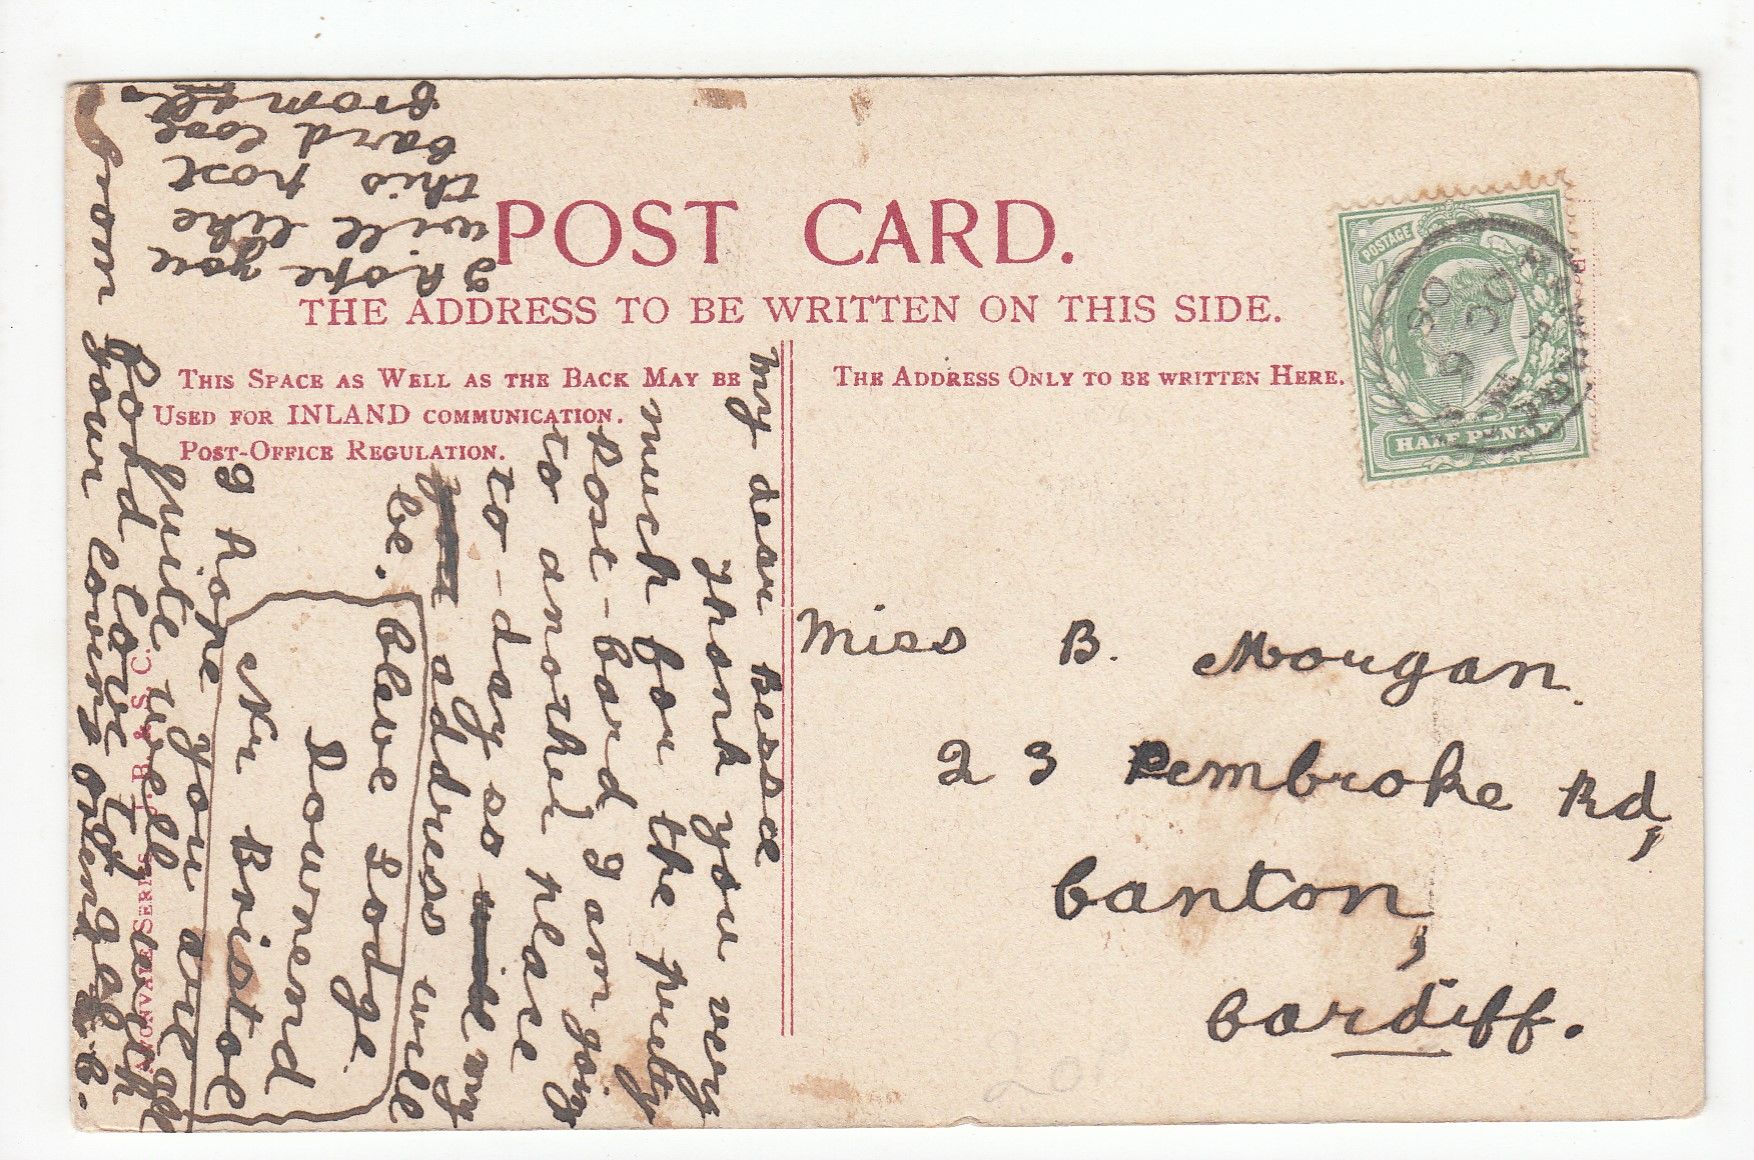 POST CARD.
THE ADDRESS TO BE WRITTEN ON THIS SIDE.
THIS SPACE AS WELL AS THE BACK MAY BE
USED FOR INLAND COMMUNICATION.
POST-OFFICE REGULATION.
THE ADDRESS ONLY TO BE WRITTEN HERE.
POSTAGE
HALF PENNY
Miss B. Morgan.
23 Pembroke Rd,
Canton,
Cardiff.
My dear Besse
Thank you very
much for the pretty
post-card I am going
to another place
to-day so my
address will
be.
Cleve Lodge
Downend
Nr Bristol
I hope you are
quite well with
fond love to
your loving
from
I hope you
will like
this post
card love
from all.
AVONVALE SERIES J. B. & S. C.